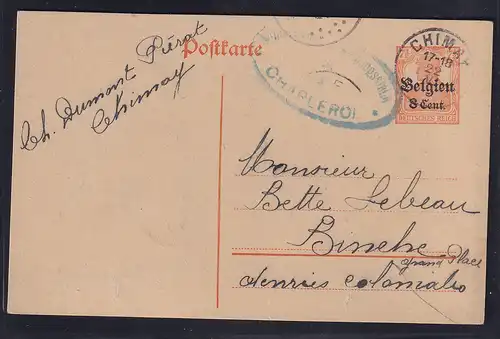 Postkarte
Ch. Dumont Pérot
Chimay
CHARLEROI
CHIMAY
17-18
Belgien
8 Cent.
DEUTSCHES REICH
Monsieur
Bette Lebeau
Binche
Grand Place
denrées coloniales